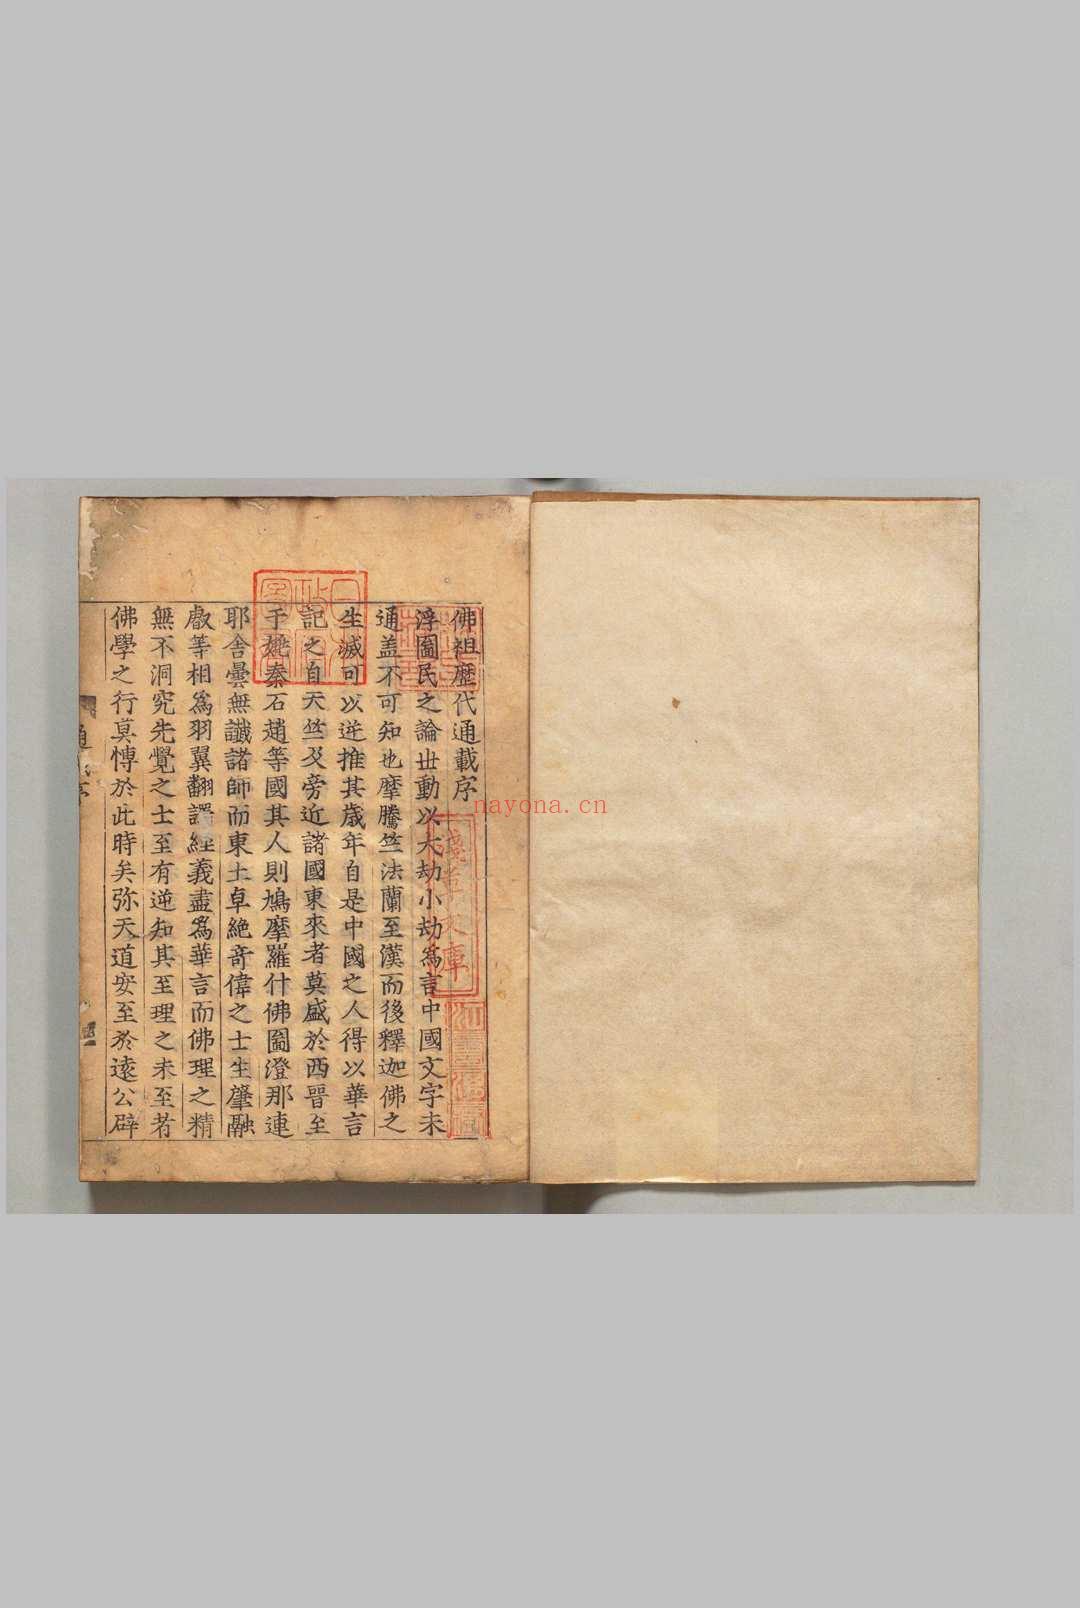 佛祖歷代通載序
浮圖氏之論世動以大劫小劫為言中國文字未
通盖不可知也摩騰竺法蘭至漢而後釋迦佛之
生滅可以逆推其歲年自是中國之人得以華言
記之自天竺及旁近諸國東來者莫盛於西晉至
于姚秦石趙等國其人則鳩摩羅什佛圖澄那連
耶舍曇無讖諸師而東土卓絕奇偉之士生肇融
叡等相為羽翼翻譯經義盡為華言而佛理之精
無不洞究先覺之士至有逆知其至理之未至者
佛學之行莫博於此時矣弥天道安至於遠公辟
淺草文庫
nayona.cn